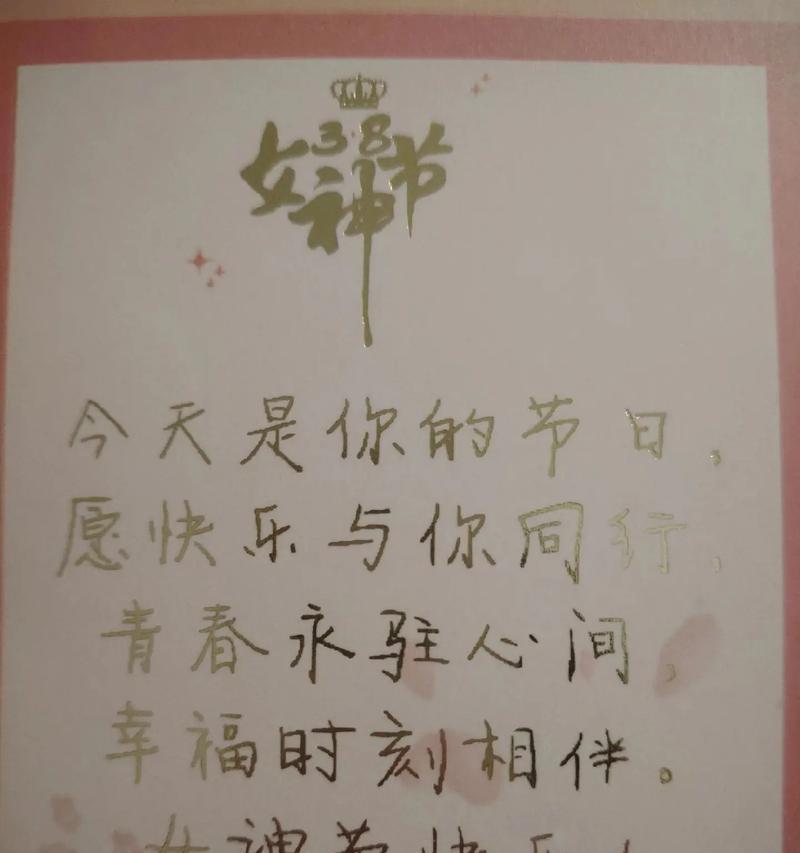 3.8
女神节
今天是你的节日，
愿快乐与你同行，
青春永驻心间，
幸福时刻相伴。
女神节快乐！